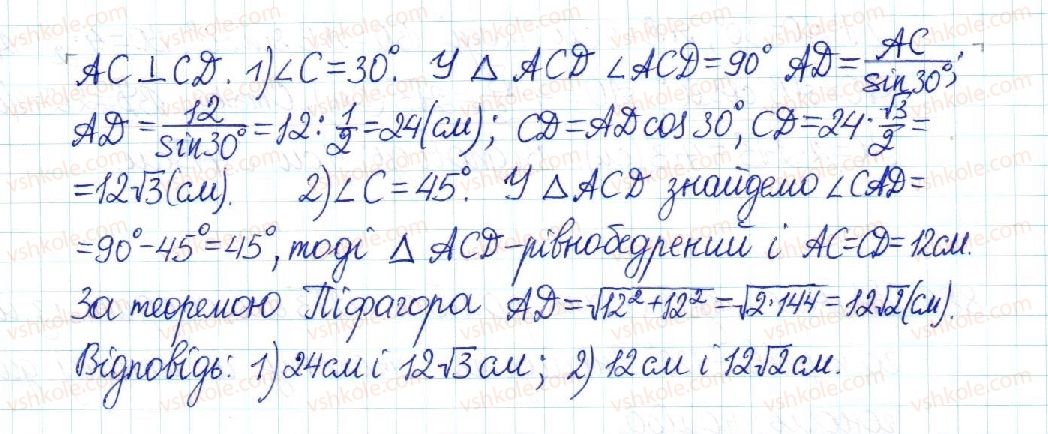 AC ⊥ CD. 1) ∠C = 30°. У △ ACD ∠ACD = 90° AD = AC/sin 30°;
AD = 12/sin 30° = 12 : 1/2 = 24 (см); CD = AD cos 30°, CD = 24 · √3/2 =
= 12√3 (см). 2) ∠C = 45°. У △ ACD знайдемо ∠CAD =
= 90° - 45° = 45°, тоді △ ACD - рівнобедрений і AC = CD = 12 см.
За теоремою Піфагора AD = √(12² + 12²) = √(2 · 144) = 12√2 (см).
Відповідь: 1) 24 см і 12√3 см; 2) 12 см і 12√2 см.